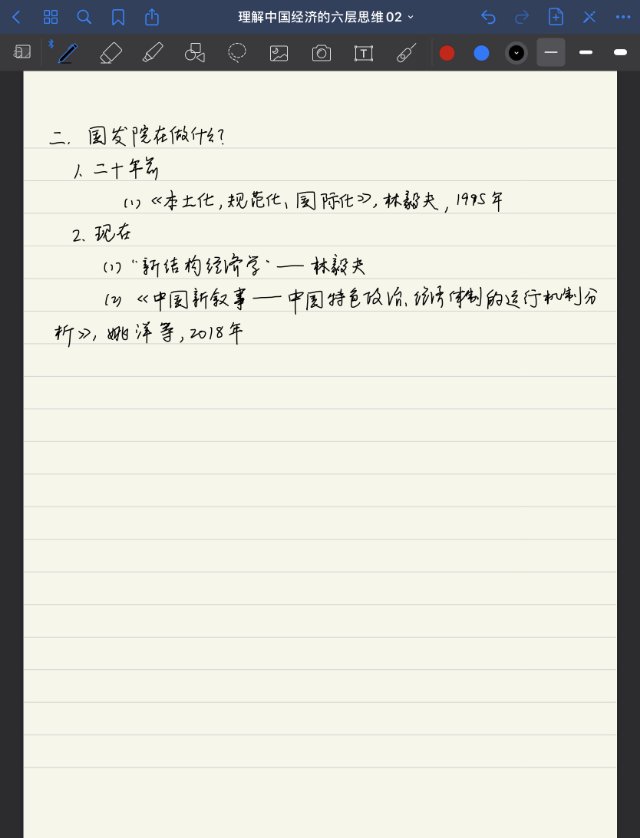 理解中国经济的六层思维 02
二. 国发院在做什么?
1. 二十年前
(1) 《本土化, 规范化、国际化》, 林毅夫, 1995年
2. 现在
(1) "新结构经济学" — 林毅夫
(2) 《中国新叙事 — 中国特色政治、经济体制的运行机制分
析》, 姚洋等, 2018年